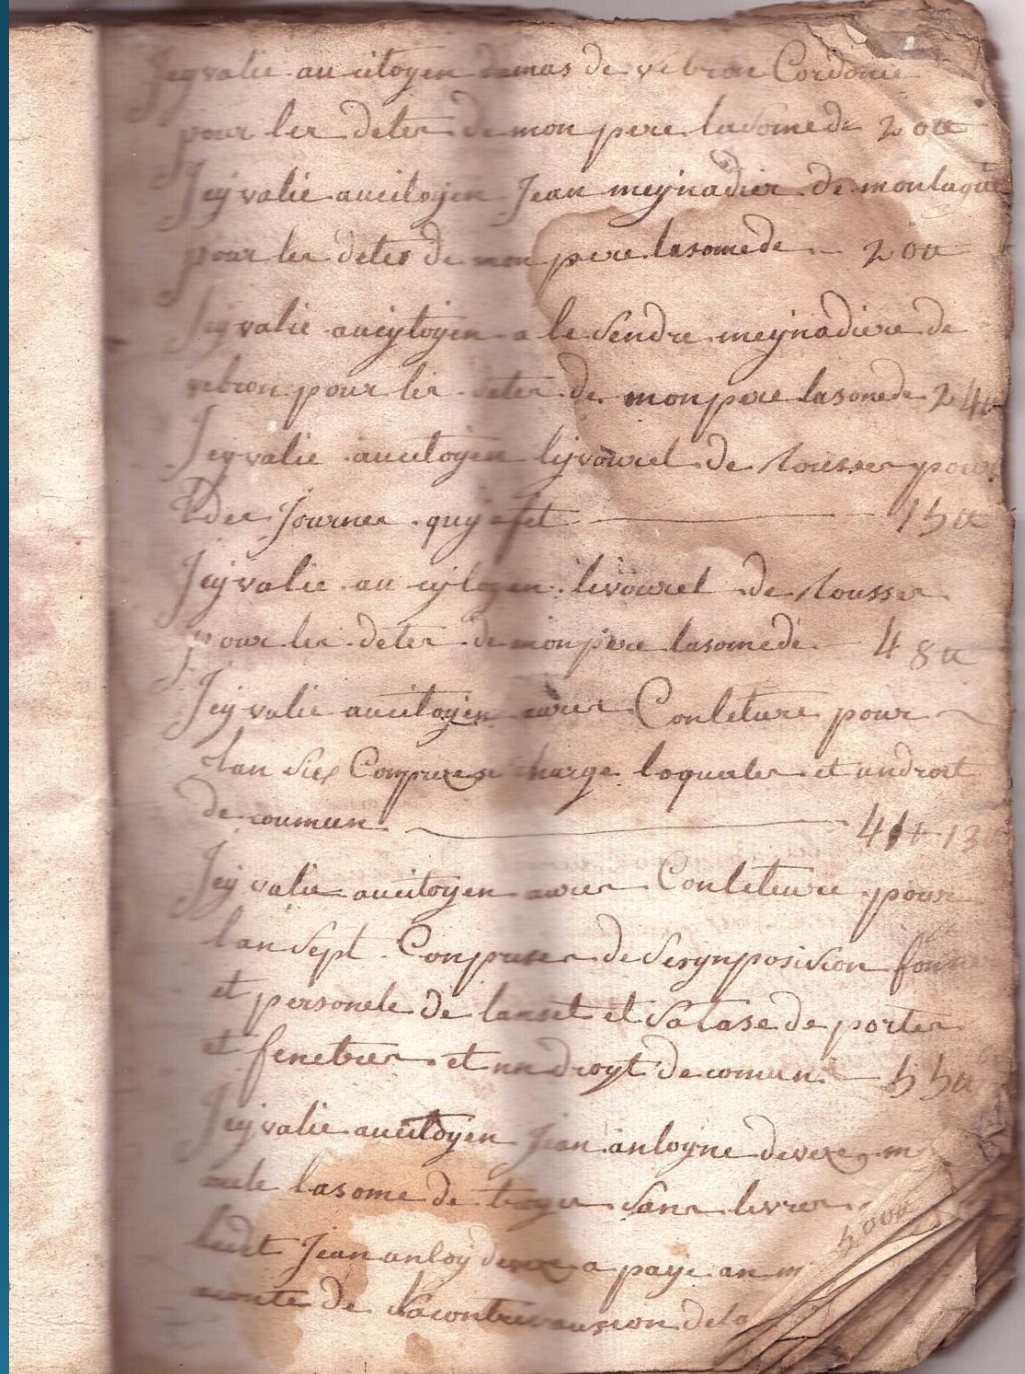 Jeyvalie au citoyen damas de vebron Cordonie
pour les detes de mon pere lasomede 20tt
Jeyvalie aucitoyen Jean meynadier de montagu
pour les detes de mon pere lasomede 20tt
Jeyvalie aucytoyen alesendre meynadiere de
vebron pour les detes de mon pere lasomede 24tt
Jeyvalie aucitoyen lyvourel de rousses pour
des Journes quy afet 15tt
Jeyvalie au cytoyen livourel de rousses
pour les detes de mon pere lasomede 48tt
Jeyvalie aucitoyen Conleture pour
lan siex Comprese charge loquales et undroit
de coumun 41tt 13
Jeyvalie aucitoyen Conleteure pour
lan sept Compreses de sesynposision
et personele de lanset et sa tase de portes
et fenetres et un droyt de comun 55tt
Jeyvalie aucitoyen Jean antoyne
lasome de sans livres 300tt
ledet Jean antoy a paye an
aconte de sacontrivausion dela